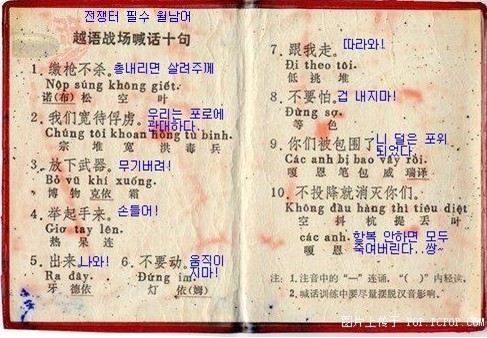 전쟁터 필수 월남어
越语战场喊话十句
1. 缴枪不杀。총내리면 살려주께
Nộp súng không giết.
诺(布) 松 空 叶
2. 我们宽待俘虏。우리는 포로에
관대하다
Chúng tôi khoan hồng tù binh.
宗 堆 宽 洪 毒 兵
3. 放下武器。무기버려!
Bỏ vũ khí xuống.
博 物 克依 霜
4. 举起手来。손들어!
Giơ tay lên.
热 呆 连
5. 出来。나와! 6. 不要动。움직이
지마!
Ra đây. Đứng im.
牙 德依 灯 依(姆)
7. 跟我走。따라와!
Đi theo tôi.
低 挑 堆
8. 不要怕。겁 내지마!
Đừng sợ.
等 色
9. 你们被包围了。니 덜은 포위
되었다.
Các anh bị bao vây rồi.
嘎 恩 笔 包 威 瑞译
10. 不投降就消灭你们。
Không đầu hàng thì tiêu diệt
空 斗 杭 提 丢 叶
các anh. 항복 안하면 모두
嘎 恩 죽여버린다..쌍~
注: 1. 注音中的“一”连诵,“( )”内轻读。
2. 喊话训练中要尽量摆脱汉音影响。
图片上传于